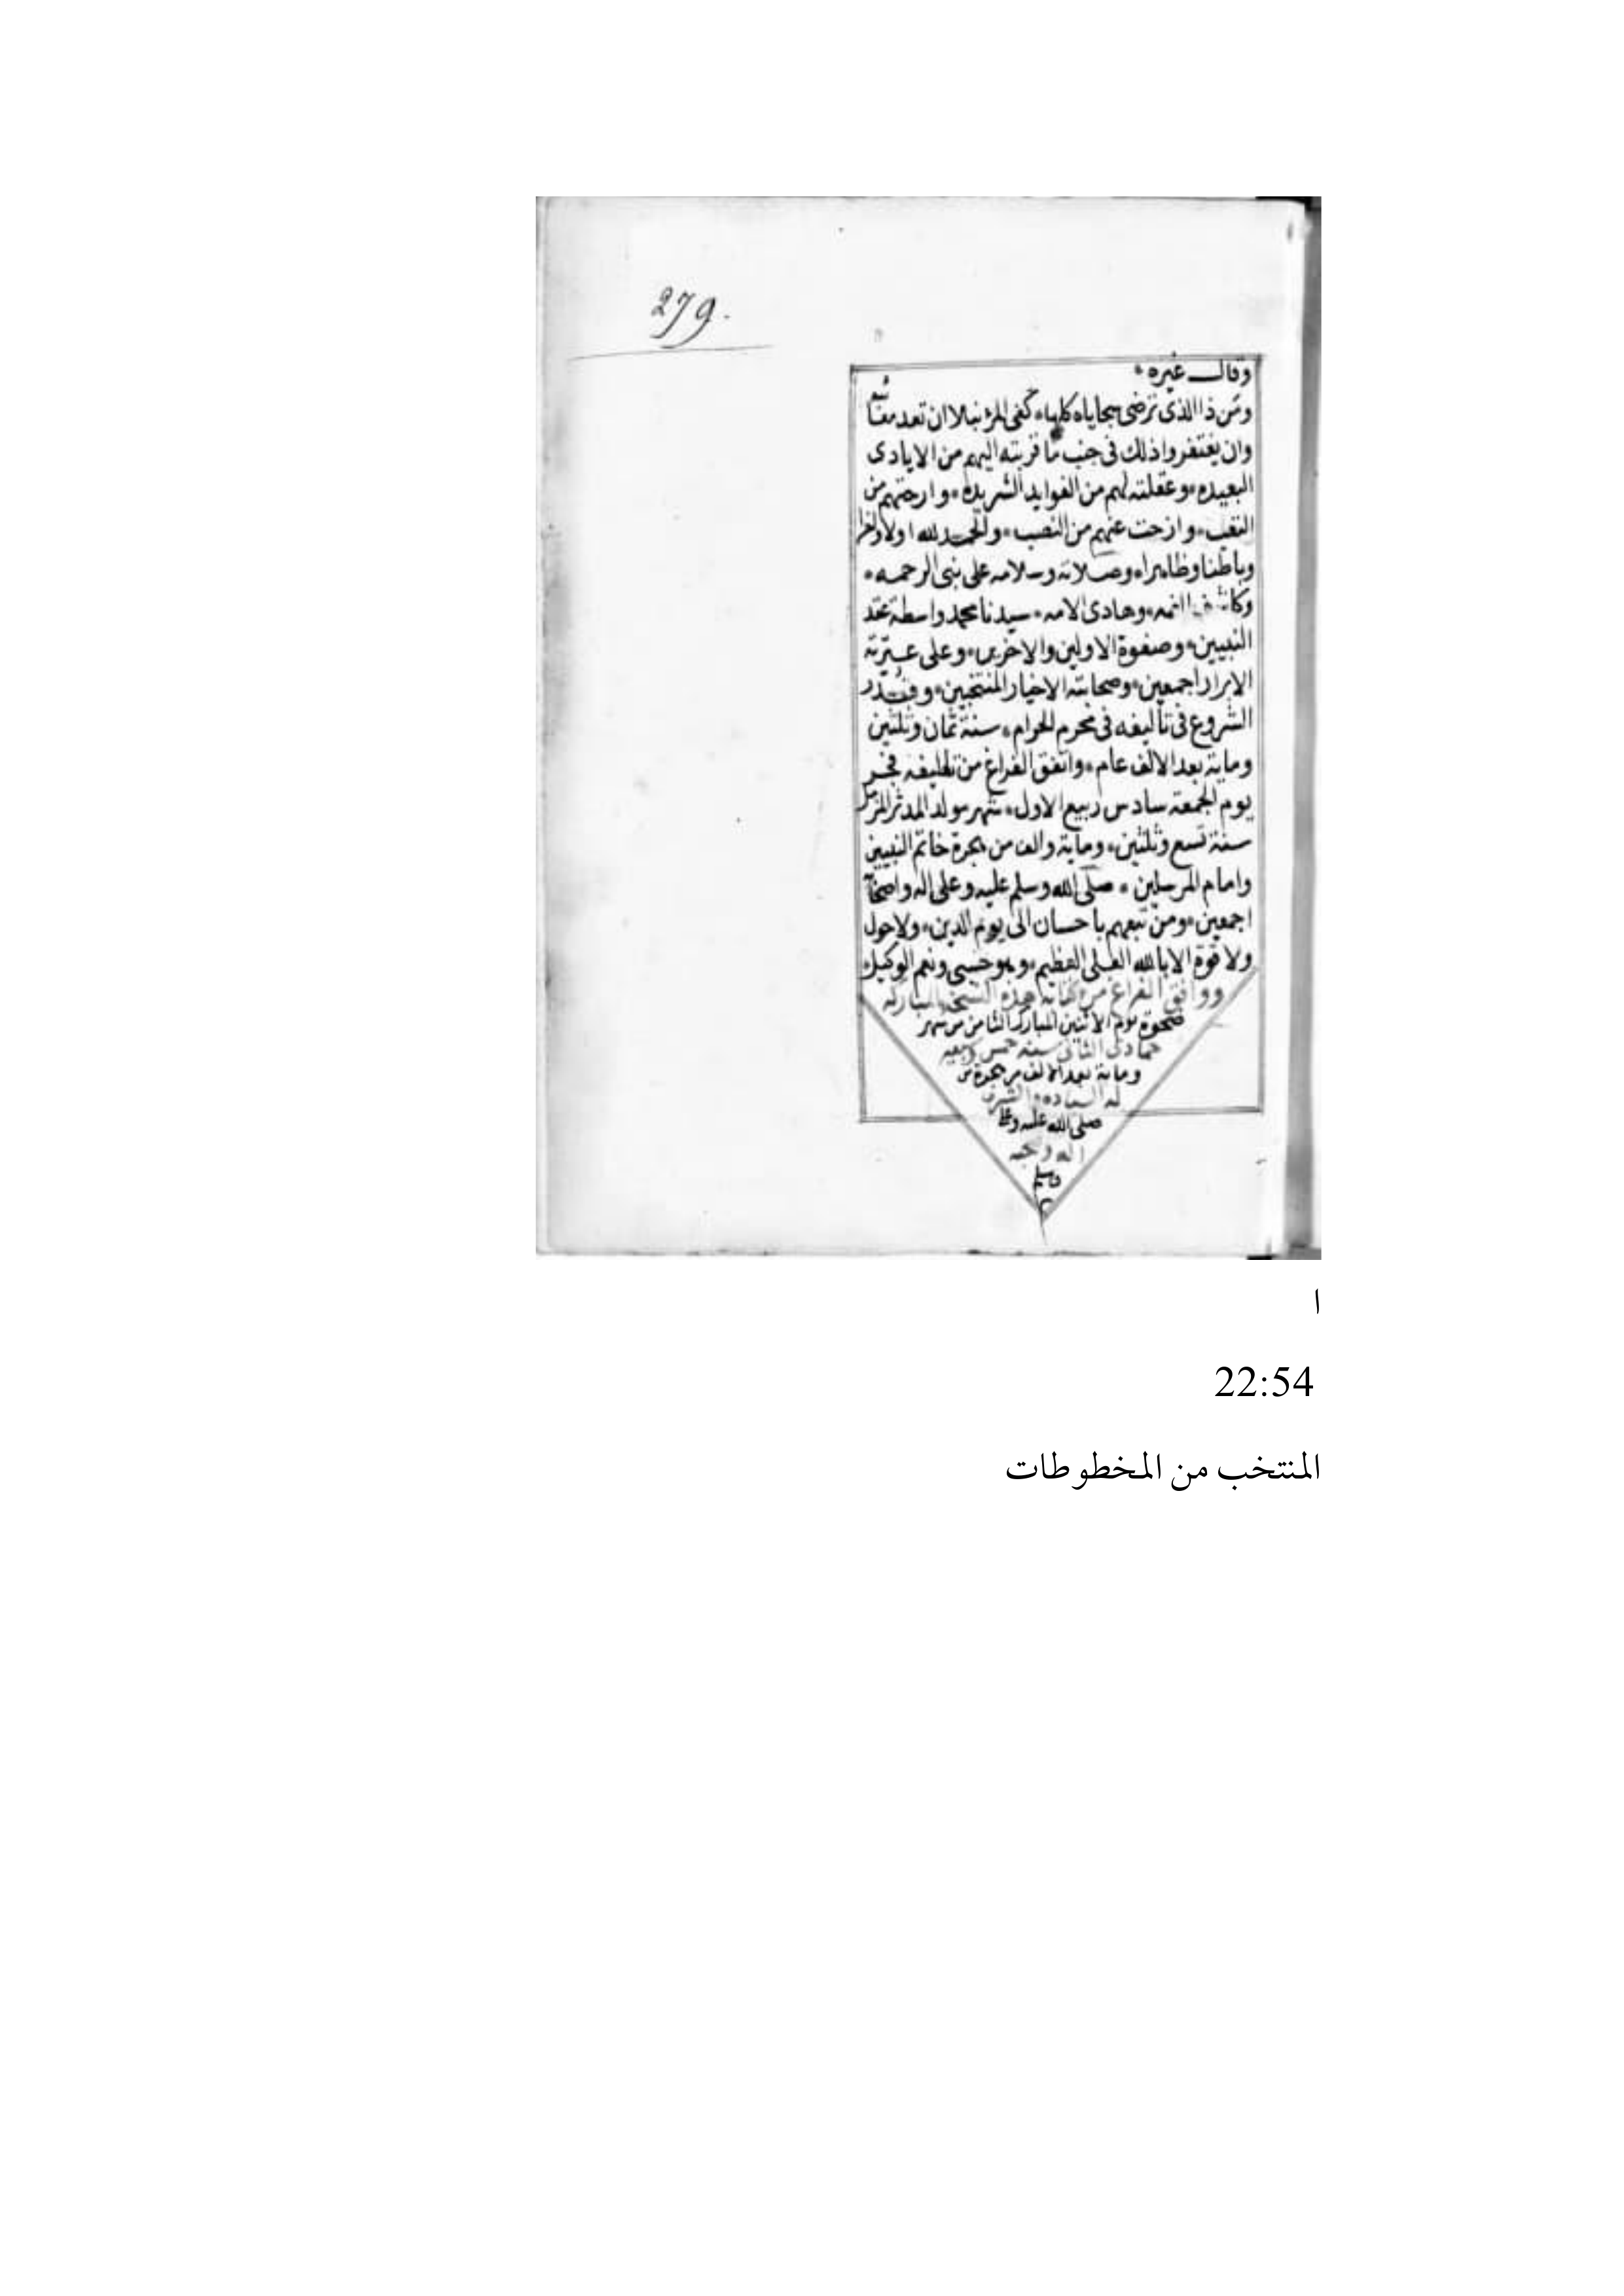 279.
وقال غيره
ومن ذا الذي ترضى سجاياه كلها كفى المرء نبلا ان تعد معائبه
وان يغتفروا ذلك في جنب ما قربته اليهم من الايادى
البعيده وعقلته لهم من الفوايد الشريده وارحتهم من
التعب وازحت عنهم من النصب والحمد لله اولا واخرا
وباطنا وظاهرا وصلاته وسلامه على نبى الرحمه
وكاشف الغمه وهادى الامه سيدنا محمد واسطة عقد
النبيين وصفوة الاولين والاخرين وعلى عترته
الابرار اجمعين وصحابته الاخيار المنتخبين
الشروع في تأليفه في محرم الحرام سنة ثمان وثلثين
وماية بعد الالف عام واتفق الفراغ من فجر
يوم الجمعة سادس ربيع الاول شهر مولد المدثر المزمل
سنة تسع وثلثين وماية والف من هجرة خاتم النبيين
وامام المرسلين صلى الله وسلم عليه وعلى اله واصحابه
اجمعين ومن تبعهم باحسان الى يوم الدين ولا حول
ولا قوة الا بالله العلى العظيم وهو حسبى ونعم الوكيل
ووافق الفراغ من كتابة هذه النسخة المباركه
ضحوة يوم الاثنين المبارك الثامن من شهر
جمادى الثانى سنة خمس
وماية بعد الالف من هجرة من
له السياده والشرف
صلى الله عليه وعلى
اله وصحبه
وسلم
ا
22:54
المنتخب من المخطوطات